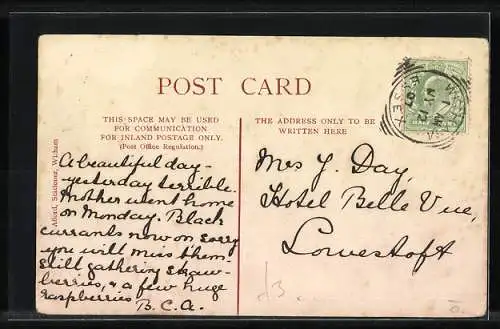 POST CARD
THIS SPACE MAY BE USED
FOR COMMUNICATION
FOR INLAND POSTAGE ONLY.
(Post Office Regulation.)
THE ADDRESS ONLY TO BE
WRITTEN HERE
Afford, Stationer, Witham
A beautiful day -
yesterday terrible.
Mother went home
on Monday. Black
currants now on sorry
you will miss them -
still gathering straw-
berries, & a few huge
raspberries B.C.A.
Mrs J. Day,
Hotel Belle Vue,
Lowestoft
WITHAM